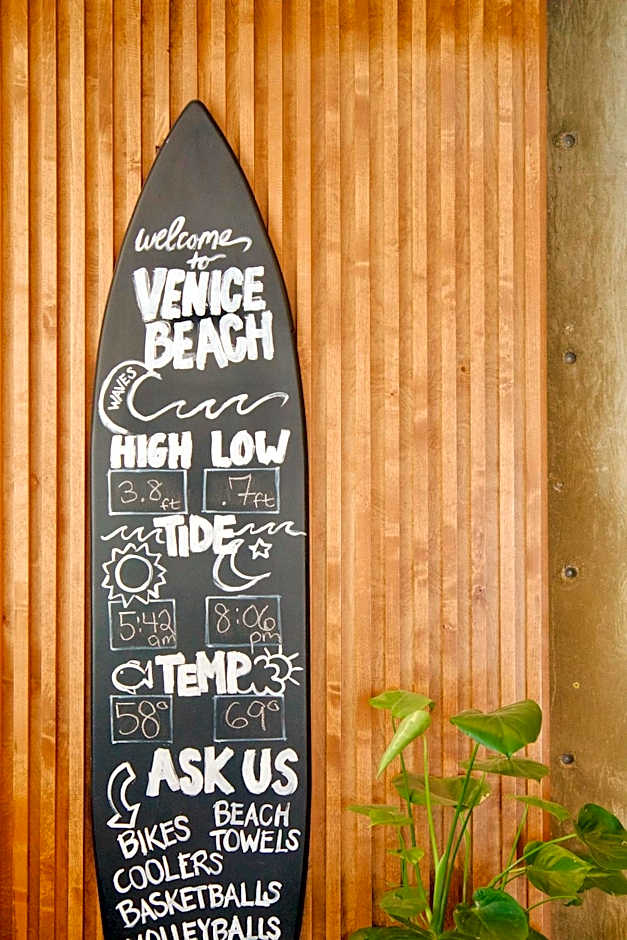 welcome
to
VENICE
BEACH
WAVES
HIGH LOW
3.8ft .7ft
TIDE
5:42 am 8:06 pm
TEMP
58° 69°
ASK US
BIKES
BEACH TOWELS
COOLERS
BASKETBALLS
VOLLEYBALLS